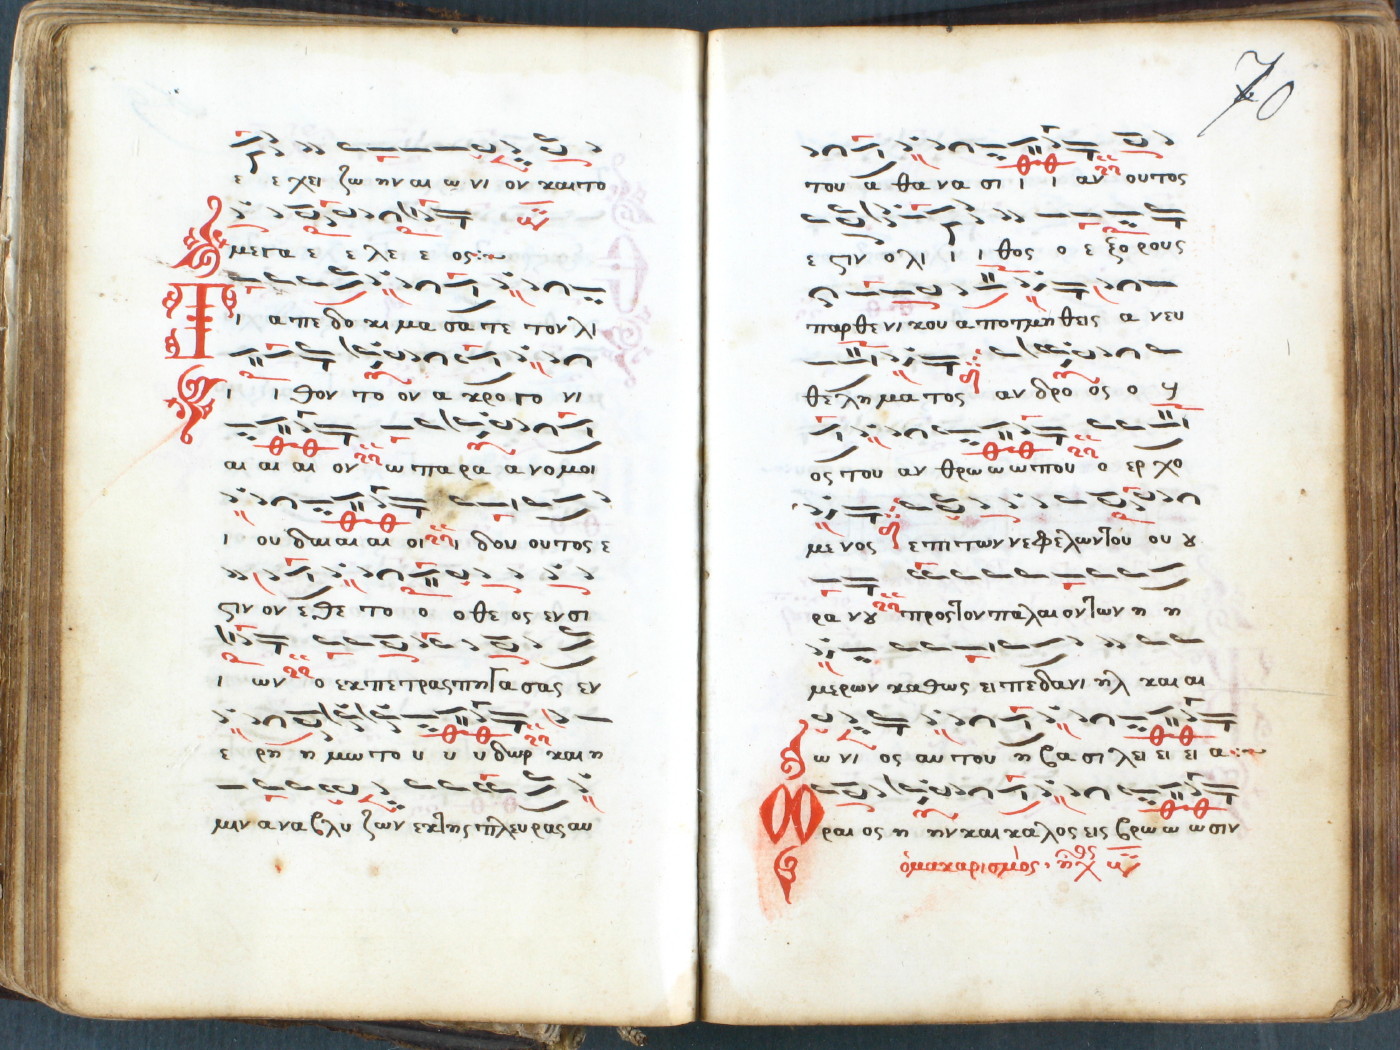 ε ε χει ζω ην αι ω νι ον και το
μεγα ε ε λε ε ος :~
Τι α πε δο κι μα σα τε τον λι
ι ι θον το ον α κρο γο νι
αι αι αι ον ω πα ρα α νο μοι
ι ου δαι αι αι οι ι δου ουτος ε
ςιν ον ε θε το ο ο θε ος εν σι
ι ων ο εκ πε τρας πηγα σας εν
ε ρη η μω το υ υ υ δωρ και η
μιν α να βλυ ζων εκ της πλευρας αυ
70
του α θα να σι ι ι αν ουτος
ε ςιν ο λι ι ι θος ο ε ξο ρους
παρθε νι κου α ποτμη θεις α νευ
θε λη μα τος αν δρο ος ο υ
ος του αν θρω ω ω που ο ερ χο
με νος ε πι των νε φε λων του ου ȣ
ρα νȣ προς τον παλαι ον των η η
μερων καθως ει πε δανι ηλ και αι
ω νι ος αυ του η βα σι λει ει ει α :~
Ωραι ος η ην και καλος εις βρω ω ω σιν
ὁ μακαρισμὸς · ἦχος